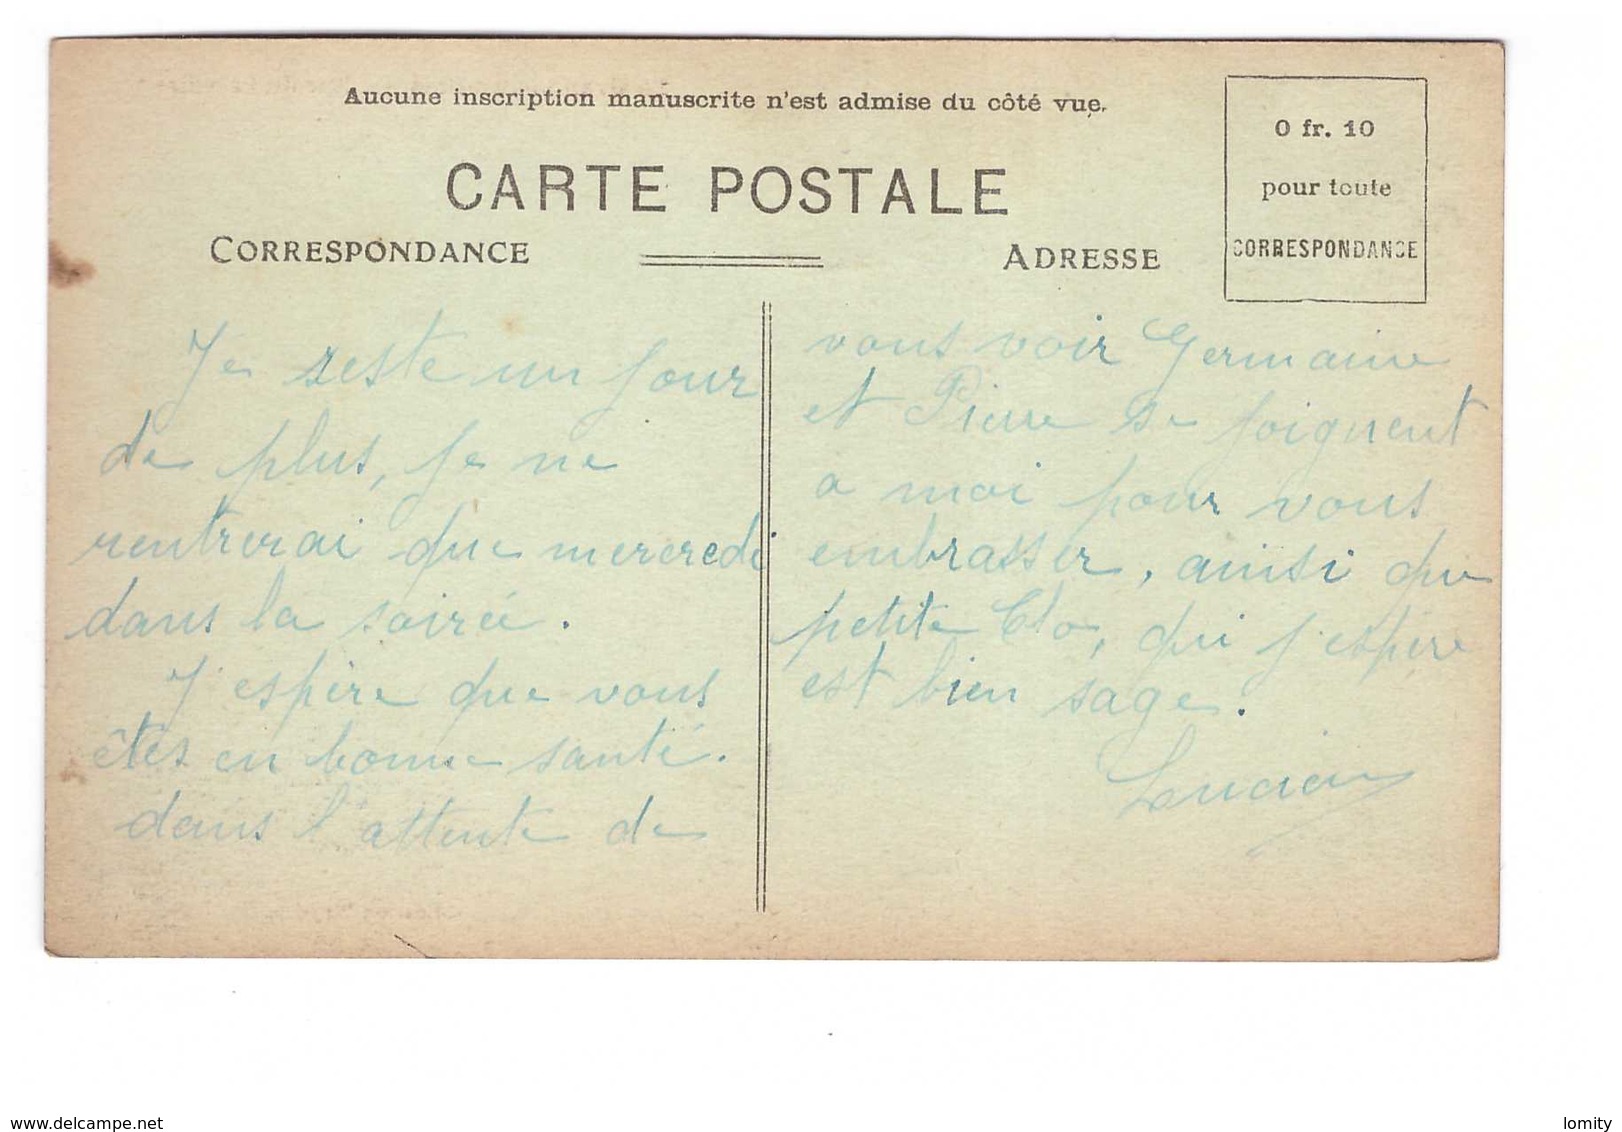 Aucune inscription manuscrite n'est admise du côté vue.
CARTE POSTALE
CORRESPONDANCE
ADRESSE
0 fr. 10
pour toute
CORRESPONDANCE
Je reste un jour
de plus, je ne
rentrerai que mercredi
dans la soirée.
J'espère que vous
êtes en bonne santé.
dans l'attente de
vous voir Germaine
et Pierre se joignent
a moi pour vous
embrasser, ainsi que
petite Clo, qui j'espère
est bien sage.
Lucien
www.delcampe.net
lomity